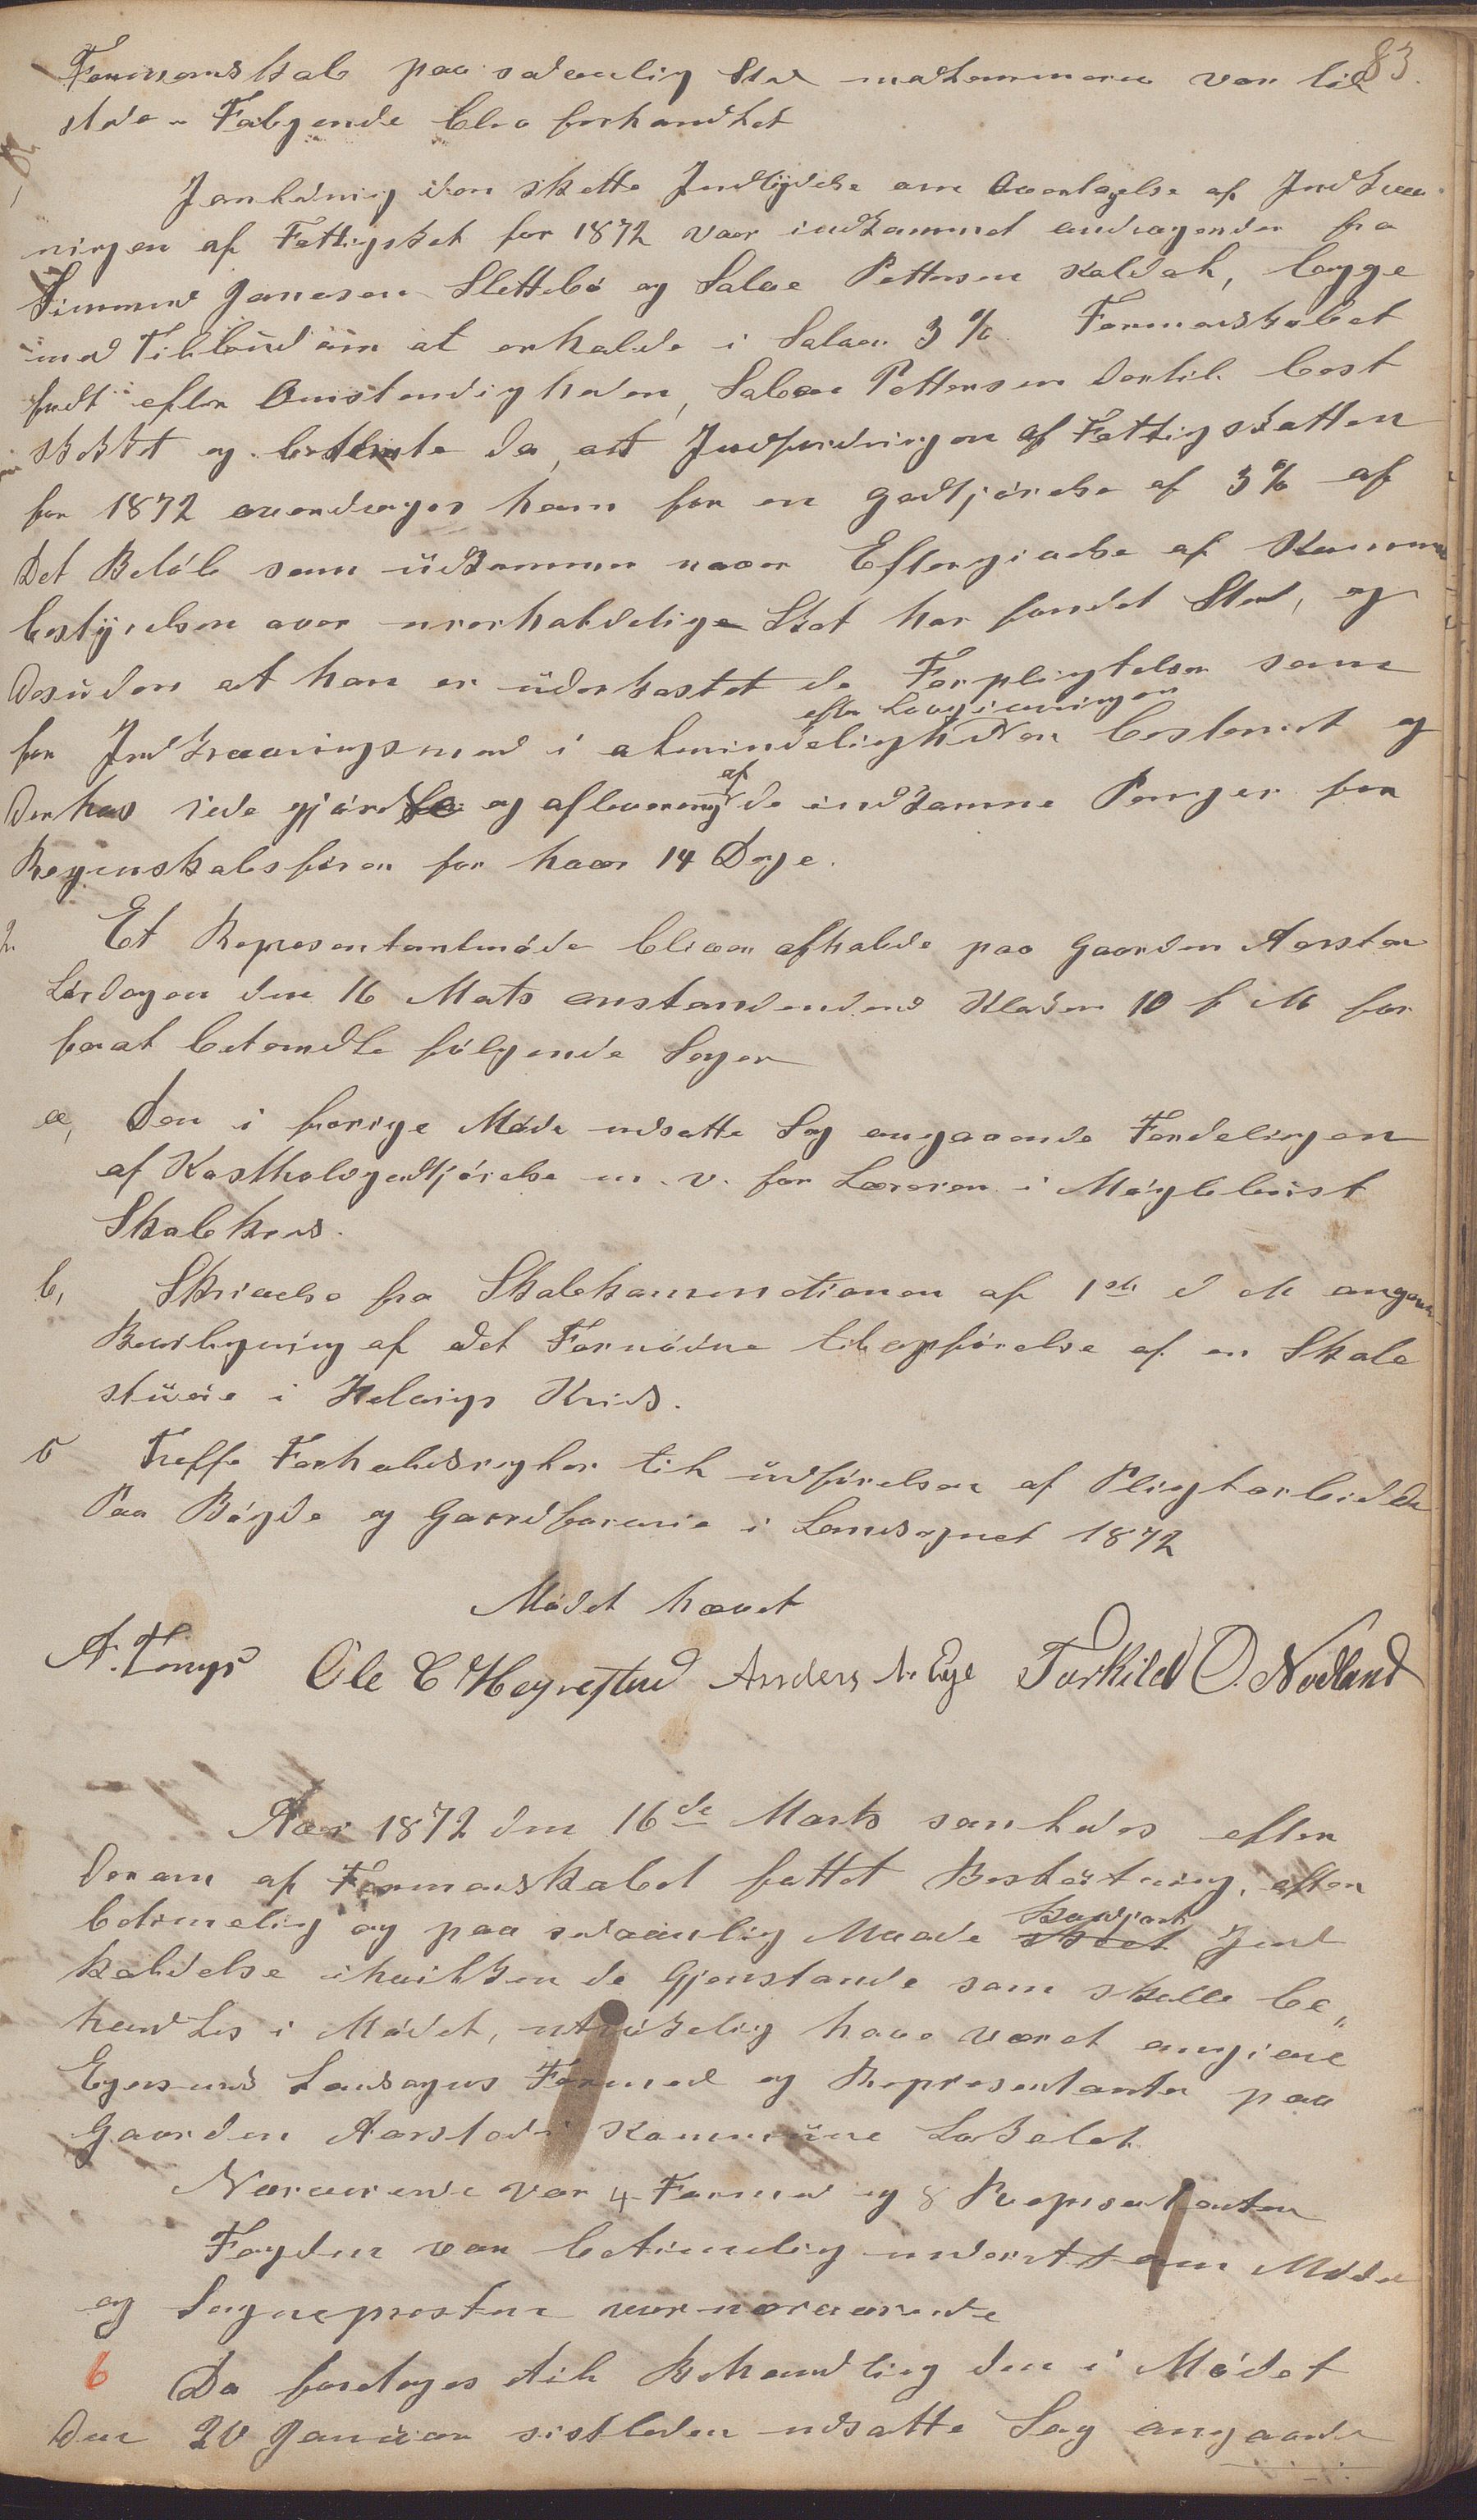 83.
Formandskab paa sedvanlig Sted medlemmerne var til
stede. Følgende blev forhandlet
I anledning den skette Indbydelse om Overtagelse af Indkræv
ningen af Fattigskat for 1872 var indkommet andragender fra
Simmund Janesen Slettebö og Salve Pettersen Koldal, begge
med Tilbud om at erholde i Salær 3 %. Formandskabet
fandt efter Omstendigheden, Salve Pettersen dertil best
skikket og bestemte da, at Indfordringen af Fattigskatten
for 1872 overdrages ham for en Godtjörelse af 3 % af
det Belöb som udkommer naar Eftergivelse af Kommune
bestyrelsen over uerholdelige Skat har fundet Sted, og
desuden at han er underkastet de Forpligtelser som
efter Lovgivningen
for Indkrævningsmend i almindelighed er bestemt og
af
derhos rede gjörelse og aflevering de indkomne Penger for
Regnskabsfören for hver 14 Dage.
2. Et Representantmöde bliver afholde paa Gaarden Aarstad
Lördagen den 16 Mats anstundende Klokken 10 f M for
forat behandle fölgende Sager
a, Den i forrige Möde udsatte Sag angaaende Fordelingen
af Kostholdgodtjörelse m. v. for Læreren i Mögleberst
Skolekreds.
b, Skrivelse fra Skolekommitionen af 1ste d M angaaende
Bevilgning af det Fornödne til opförelse af en Skole
stuve i Helvigs Kreds.
c Treffe Forholdsregler til udförelsen af Pligtarbeidet
Paa Bögde og Gaardsveie i Landsognet 1872
Mödet hævet
A. Tengs Ole C Hegrestad Anders A. Eye Torkild O. Nodland
Aar 1872 den 16de Marts samledes efter
derom af Formandskabet fattet Beslutning, efter
kundgjort
betimelig og paa sedvanlig Maade skeet Ind
kaldelse ihvilken de Gjenstande som skulle be„
handles i Mödet, udtrykelig have været angivne
Egersunds Landsogns Formend og Representanter paa
Gaarden Aarstad i Kommune Lokalet.
Nærværende var 4 Formend og 8 Representanter
Fogden var betimelig underrettet om Mödet
og Sogneprosten var nærværende
6 Da foretoges til Behandling den i Mödet
den 20 Januar sistleden udsatte Sag angaaende